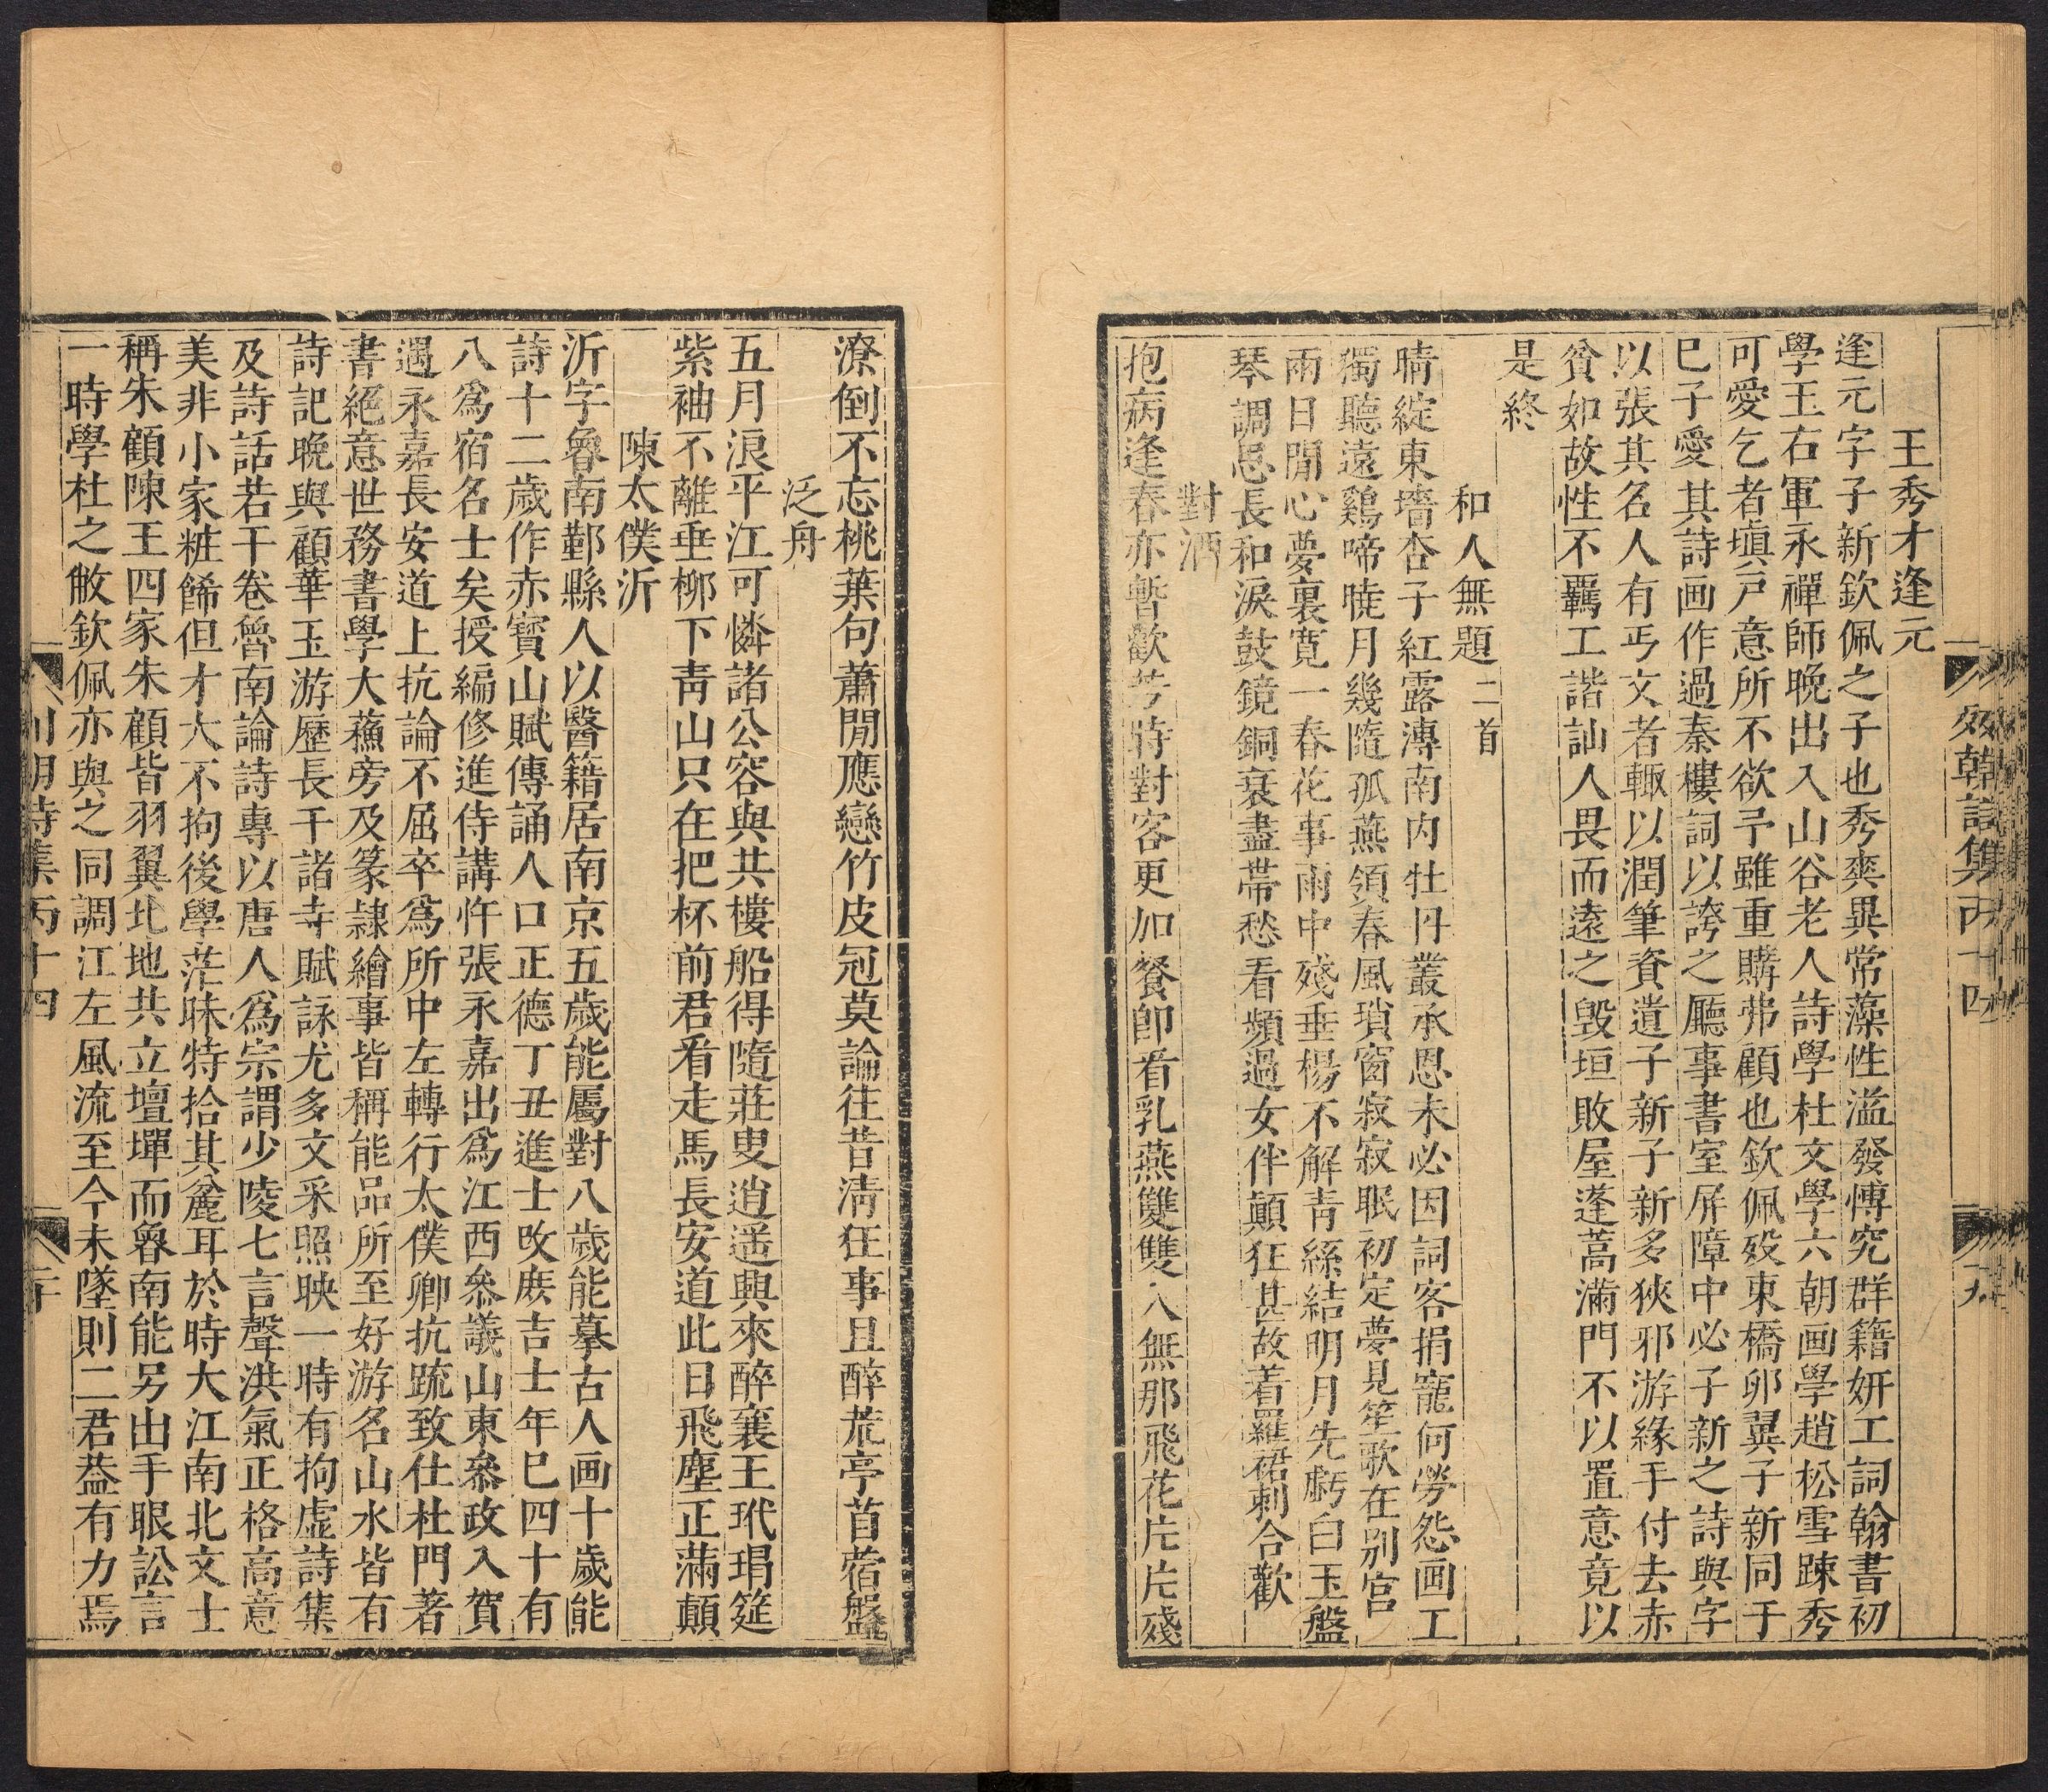 王秀才逢元
逢元字子新欽佩之子也秀爽異常藻性溢發博究群籍妍工詞翰書初
學王右軍永禪師晚出入山谷老人詩學杜文學六朝画學趙松雪踈秀
可愛乞者塡戸意所不欲予雖重購弗顧也欽佩歿東橋卵翼子新同于
巳子愛其詩画作過秦樓詞以誇之廳事書室屏障中必子新之詩與字
以張其名人有丐文者輙以潤筆資遺子新子新多狹邪游緣手付去赤
貧如故性不羈工諧訕人畏而遠之毀垣敗屋蓬蒿滿門不以置意竟以
是終
和人無題二首
晴綻東墻杏子紅露漙南内牡丹叢承恩未必因詞客捐寵何勞怨画工
獨聽遠鷄啼曉月幾隨孤燕領春風瑣窗寂寂眠初定夢見笙歌在别宮
雨日閒心夢裏寛一春花事雨中殘垂楊不解靑絲結明月先虧白玉盤
琴調思長和淚鼓鏡銅衰盡帶愁看頻過女伴顚狂甚故着羅裙刺合歡
對酒
抱病逢春亦暫歡芳時對客更加餐卽看乳燕雙雙入無那飛花片片殘
列朝詩集丙十四
十九
潦倒不忘桃葉句蕭閒應戀竹皮冠莫論往昔淸狂事且醉荒亭苜蓿盤
泛舟
五月浪平江可憐諸公容與共樓船得隨莊叟逍遥興來醉襄王玳瑁筵
紫袖不離垂柳下靑山只在把杯前君看走馬長安道此日飛塵正滿顚
陳太僕沂
沂字魯南鄞縣人以醫籍居南京五歲能屬對八歲能摹古人画十歲能
詩十二歲作赤寳山賦傳誦人口正德丁丑進士攺庶吉士年巳四十有
八爲宿名士矣授編修進侍講忤張永嘉出爲江西叅議山東叅政入賀
遇永嘉長安道上抗論不屈卒爲所中左轉行太僕卿抗疏致仕杜門著
書絕意世務書學大蘓旁及篆隷繪事皆稱能品所至好游名山水皆有
詩記晩與顧華玉游歷長干諸寺賦詠尤多文采照映一時有拘虛詩集
及詩話若干卷魯南論詩專以唐人爲宗謂少陵七言聲洪氣正格高意
美非小家粧餙但才大不拘後學茫昧特拾其麄耳於時大江南北文士
稱朱顧陳王四家朱顧皆羽翼北地共立壇墠而魯南能另出手眼訟言
一時學杜之敝欽佩亦與之同調江左風流至今未墜則二君葢有力焉
列朝詩集丙十四
二十